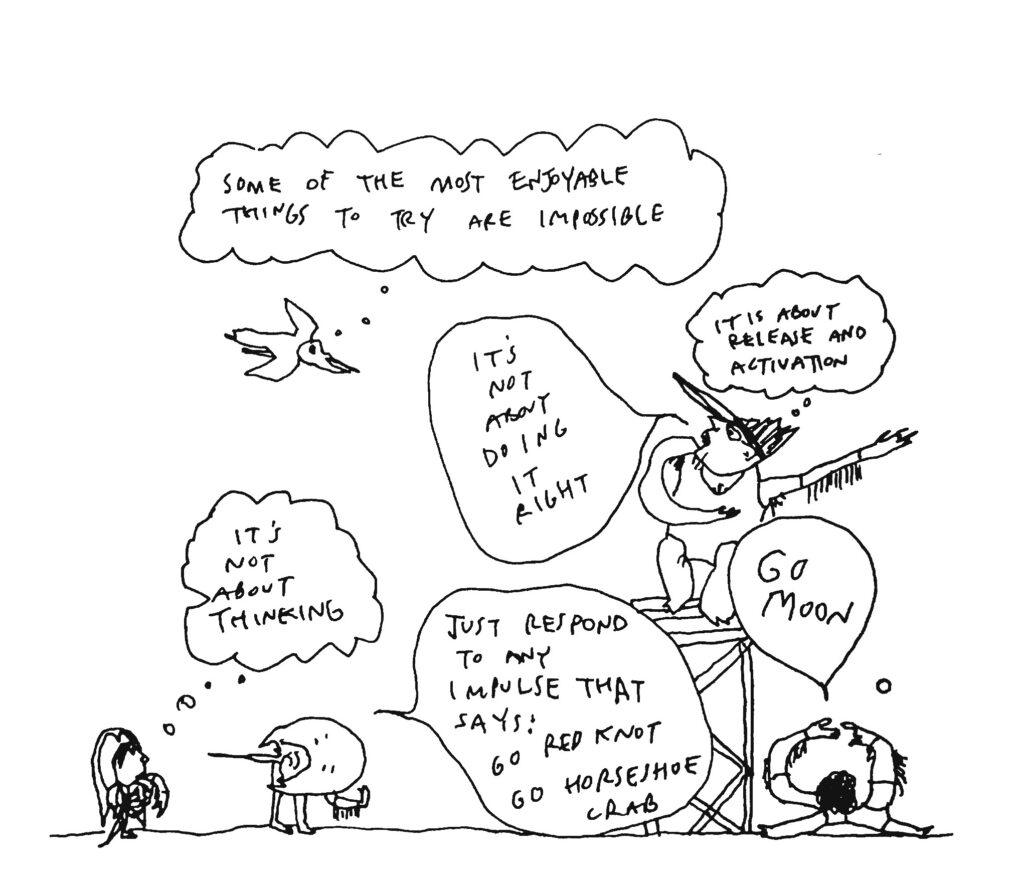 SOME OF THE MOST ENJOYABLE
THINGS TO TRY ARE IMPOSSIBLE
IT IS ABOUT
RELEASE AND
ACTIVATION
IT'S
NOT
ABOUT
DOING
IT
RIGHT
IT'S
NOT
ABOUT
THINKING
GO
MOON
JUST RESPOND
TO ANY
IMPULSE THAT
SAYS:
GO RED KNOT
GO HORSESHOE
CRAB